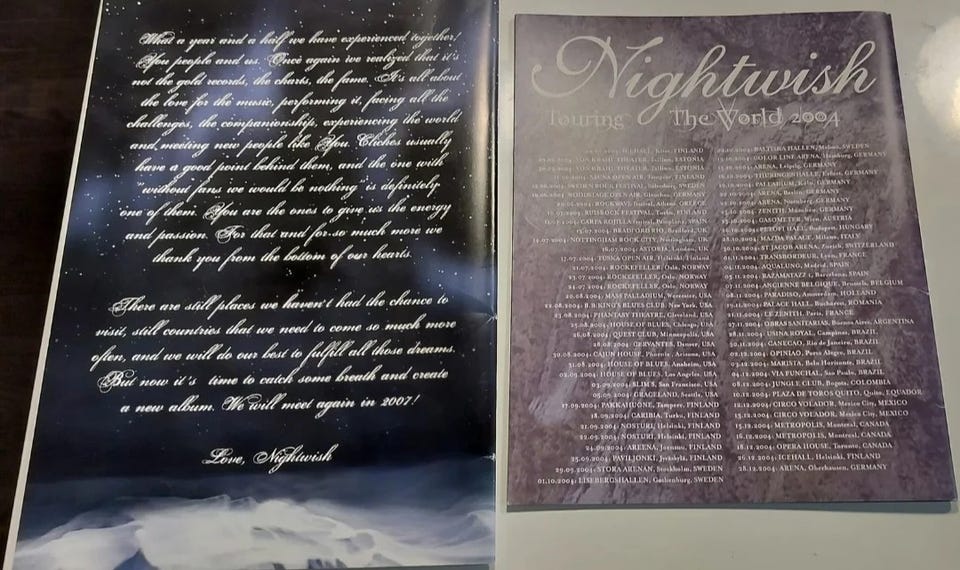 What a year and a half we have experienced together!
You people and us. Once again we realized that it's
not the gold records, the charts, the fame. It's all about
the love for the music, performing it, facing all the
challenges, the companionship, experiencing the world
and meeting new people like You. Cliches usually
have a good point behind them, and the one with
"without fans we would be nothing" is definitely
one of them. You are the ones to give us the energy
and passion. For that and for so much more we
thank you from the bottom of our hearts.
There are still places we haven't had the chance to
visit, still countries that we need to come so much more
often, and we will do our best to fulfill all those dreams.
But now it's time to catch some breath and create
a new album. We will meet again in 2007!
Love, Nightwish
Nightwish
Touring The World 2004
HALLI, Kitee, FINLAND
THEATER, Tallinn, ESTONIA
THEATER, Tallinn, ESTONIA
FINLAND
SWEDEN ROCK FESTIVAL, SWEDEN
GERMANY
ROCKWAVE festival, Athens, GREECE
RUISROCK FESTIVAL, Turku, FINLAND
SPAIN
BRADFORD RIO, Bradford, UK
14.07.2004: NOTTINGHAM ROCK CITY, Nottingham, UK
ASTORIA, London, UK
TUSKA OPEN AIR, Helsinki, FINLAND
ROCKEFELLER, Oslo, NORWAY
23.07.2004: ROCKEFELLER, Oslo, NORWAY
ROCKEFELLER, Oslo, NORWAY
20.08.2004: MASS PALLADIUM, Worcester, USA
22.08.2004: B.B KING'S BLUES CLUB, New York, USA
23.08.2004: PHANTASY THEATER, Cleveland, USA
25.08.2004: HOUSE OF BLUES, Chicago, USA
26.08.2004: QUEST CLUB, Minneapolis, USA
28.08.2004: CERVANTES, Denver, USA
30.08.2004: CAJUN HOUSE, Phoenix, Arizona, USA
31.08.2004: HOUSE OF BLUES, Anaheim, USA
02.09.2004: HOUSE OF BLUES, Los Angeles, USA
03.09.2004: SLIM'S, San Francisco, USA
05.09.2004: GRACELAND, Seattle, USA
17.09.2004: PAKKAHUONE, Tampere, FINLAND
18.09.2004: CARIBIA, Turku, FINLAND
21.09.2004: NOSTURI, Helsinki, FINLAND
22.09.2004: NOSTURI, Helsinki, FINLAND
24.09.2004: AREENA, Joensuu, FINLAND
25.09.2004: PAVILJONKI, Jyväskylä, FINLAND
29.09.2004: STORA ARENAN, Stockholm, SWEDEN
01.10.2004: LISEBERGSHALLEN, Gothenburg, SWEDEN
BALTISKA HALLEN, Malmö, SWEDEN
COLOR LINE ARENA, Hamburg, GERMANY
ARENA, Leipzig, GERMANY
THURINGENHALLE, Erfurt, GERMANY
PALLADIUM, Köln, GERMANY
ARENA, Berlin, GERMANY
ARENA, Nurnberg, GERMANY
ZENITH, München, GERMANY
GASOMETER, Wien, AUSTRIA
PETOFI HALL, Budapest, HUNGARY
MAZDA PALACE, Milano, ITALY
ST JACOB ARENA, Zurich, SWITZERLAND
TRANSBORDEUR, Lyon, FRANCE
AQUALUNG, Madrid, SPAIN
05.11.2004: RAZAMATAZZ 1, Barcelona, SPAIN
07.11.2004: ANCIENNE BELGIQUE, Brussels, BELGIUM
08.11.2004: PARADISO, Amsterdam, HOLLAND
PALACE HALL, Bucharest, ROMANIA
LE ZENITH, Paris, FRANCE
27.11.2004: OBRAS SANITARIAS, Buenos Aires, ARGENTINA
28.11.2004: USINA ROYAL, Campinas, BRAZIL
30.11.2004: CANECAO, Rio de Janeiro, BRAZIL
02.12.2004: OPINIAO, Porto Alegre, BRAZIL
03.12.2004: MARISTA, Belo Horizonte, BRAZIL
04.12.2004: VIA FUNCHAL, Sao Paulo, BRAZIL
08.12.2004: JUNGLE CLUB, Bogota, COLOMBIA
10.12.2004: PLAZA DE TOROS QUITO, Quito, EQUADOR
12.12.2004: CIRCO VOLADOR, Mexico City, MEXICO
13.12.2004: CIRCO VOLADOR, Mexico City, MEXICO
15.12.2004: METROPOLIS, Montreal, CANADA
16.12.2004: METROPOLIS, Montreal, CANADA
18.12.2004: OPERA HOUSE, Toronto, CANADA
26.12.2004: ICEHALL, Helsinki, FINLAND
28.12.2004: ARENA, Oberhausen, GERMANY